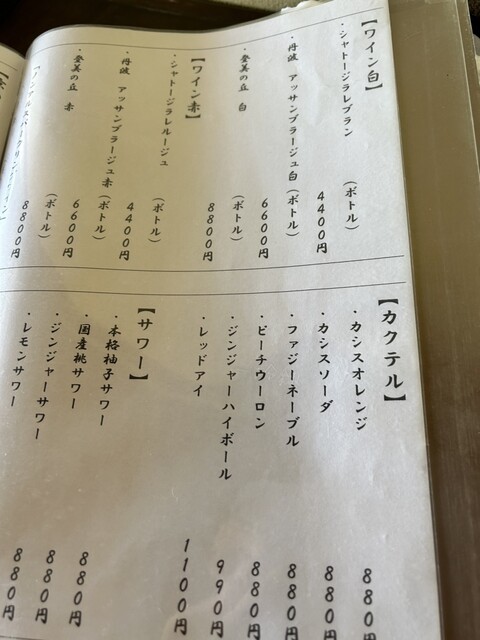 【ワイン白】
・シャトージラレブラン (ボトル)
4400円
・丹波 アッサンブラージュ白 (ボトル)
6600円
・登美の丘 白 (ボトル)
8800円
【ワイン赤】
・シャトージラレルージュ (ボトル)
4400円
・丹波 アッサンブラージュ赤 (ボトル)
6600円
・登美の丘 赤 (ボトル)
8800円
【カクテル】
・カシスオレンジ 880円
・カシスソーダ 880円
・ファジーネーブル 880円
・ピーチウーロン 880円
・ジンジャーハイボール 990円
・レッドアイ 1100円
【サワー】
・本格柚子サワー 880円
・国産桃サワー 880円
・ジンジャーサワー 880円
・レモンサワー